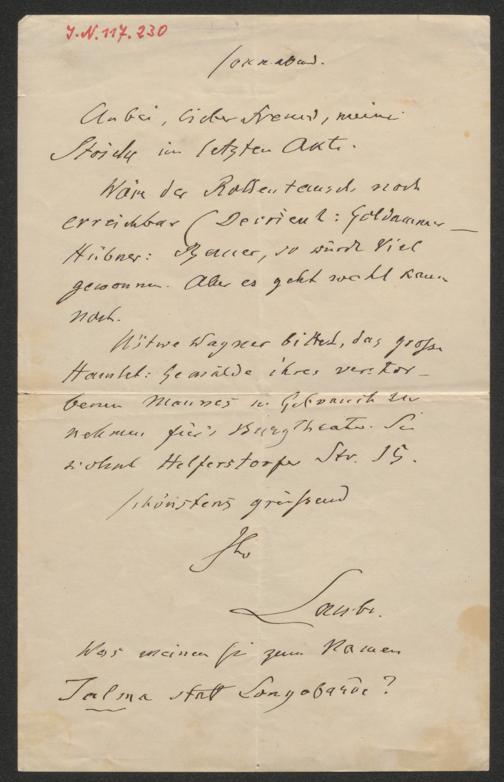 I.N. 117.230
Sonnabend.
Anbei, lieber Freund, meine
Striche im letzten Akte.
Wäre der Rollentausch noch
erreichbar (Devrient: Goldammer —
Hübner: Bauer, so würde Viel
gewonnen. Aber es geht wohl kaum
noch.
Witwe Wagner bittet, das große
Hamlet: Gemälde ihres verstor-
benen Mannes in Gebrauch zu
nehmen für's Burgtheater. Sie
wohnt Helferstorfer Str. 15.
Schönstens grüßend
Ihr
Laube.
Was meinen Sie zum Namen
Talma statt Longobarde?